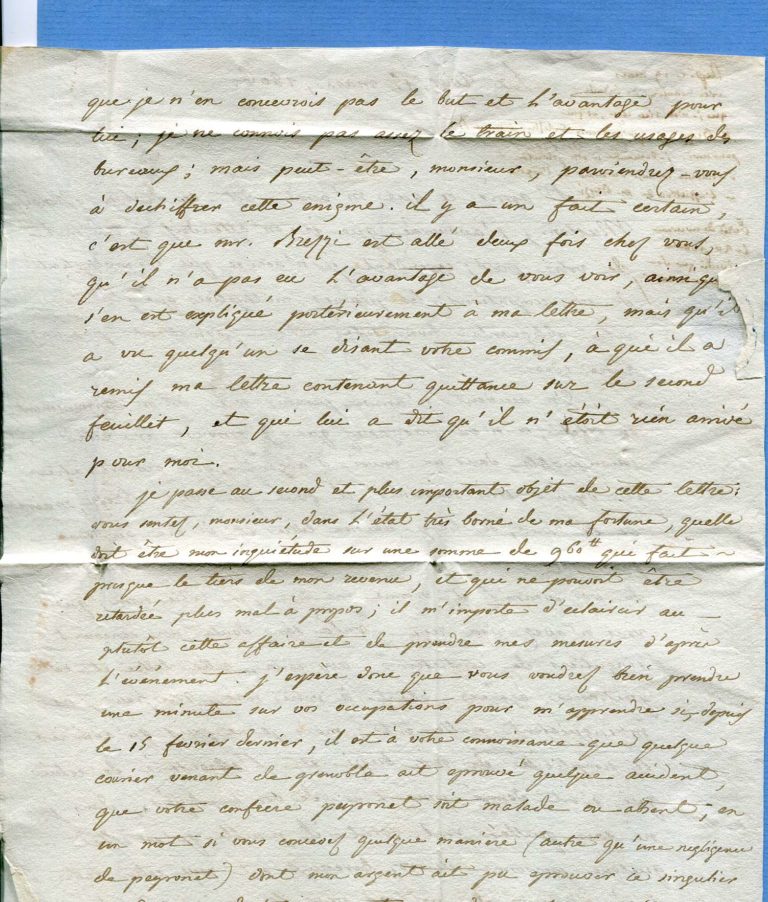 que je n'en concevrois pas le but et l'avantage pour
lui; je ne connois pas assez le train et les usages des
bureaux; mais peut-être, monsieur, parviendrez-vous
à dechiffrer cette enigme. il y a un fait certain,
c'est que mr. Brezzi est allé deux fois chez vous,
qu'il n'a pas eu l'avantage de vous voir, ainsi qu'il
s'en est expliqué postérieurement à ma lettre, mais qu'il
a vu quelqu'un se disant votre commis, à qui il a
remis ma lettre contenant quittance sur le second
feuillet, et qui lui a dit qu'il n'étoit rien arrivé
pour moi.
je passe au second et plus important objet de cette lettre:
vous sentez, monsieur, dans l'état très borné de ma fortune, quelle
doit être mon inquiétude sur une somme de 960 tt qui fait
presque le tiers de mon revenu, et qui ne pouvoit être
retardée plus mal à propos; il m'importe d'eclaircir au
plutôt cette affaire et de prendre mes mesures d'après
l'événement. j'espère donc que vous voudrez bien prendre
une minute sur vos occupations pour m'apprendre si, depuis
le 15 fevrier dernier, il est à votre connoissance que quelque
courier venant de grenoble ait eprouvé quelque accident,
que votre confrère peyronet soit malade ou absent; en
un mot si vous concevez quelque manière (autre qu'une negligence
de peyronet) dont mon argent ait pu eprouver ce singulier